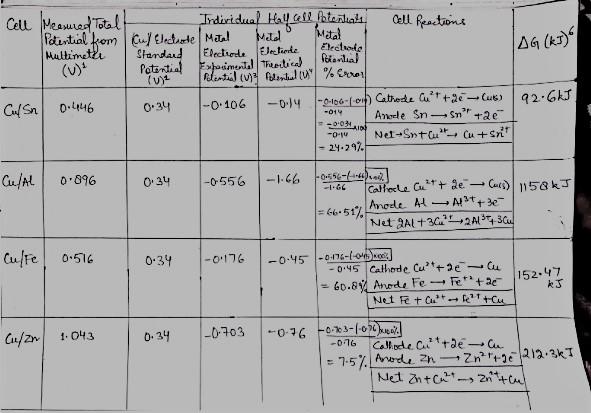 Cell
Measured Total Potential from Multimeter (V)¹
Individual Half Cell Potentials
Cu/Electrode Standard Potential (V)²
Metal Electrode Experimental Potential (V)³
Metal Electrode Theoretical Potential (V)⁴
Metal Electrode Potential % Error
Cell Reactions
ΔG (kJ)⁶
Cu/Sn 0.446 0.34 -0.106 -0.14
-0.106-(-0.14)
-0.14
= -0.034 x100
-0.14
= 24.29%
Cathode Cu²⁺ + 2e⁻ → Cu(s)
Anode Sn → Sn²⁺ + 2e⁻
Net → Sn + Cu²⁺ → Cu + Sn²⁺
92.6kJ
Cu/Al 0.896 0.34 -0.556 -1.66
-0.556-(-1.66) x100%
-1.66
= 66.51%
Cathode Cu²⁺ + 2e⁻ → Cu(s)
Anode Al → Al³⁺ + 3e⁻
Net 2Al + 3Cu²⁺ → 2Al³⁺ + 3Cu
1158 kJ
Cu/Fe 0.516 0.34 -0.176 -0.45
-0.176-(-0.45) x100%
-0.45
= 60.89%
Cathode Cu²⁺ + 2e⁻ → Cu
Anode Fe → Fe⁺² + 2e⁻
Net Fe + Cu²⁺ → Fe²⁺ + Cu
152.47 kJ
Cu/Zn 1.043 0.34 -0.703 -0.76
-0.703-(-0.76) x100%
-0.76
= 7.5%
Cathode Cu²⁺ + 2e⁻ → Cu
Anode Zn → Zn²⁺ + 2e⁻
Net Zn + Cu²⁺ → Zn²⁺ + Cu
212.3kJ